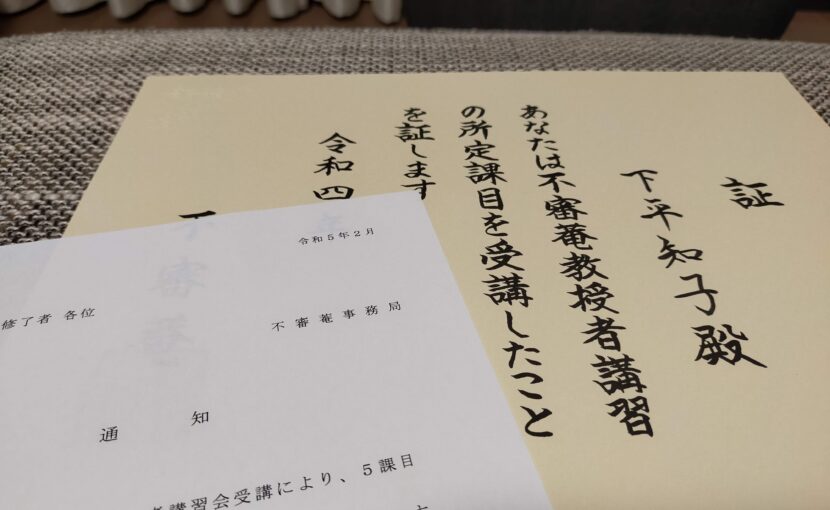 証
下平知子殿
あなたは不審菴教授者講習
の所定課目を受講したこと
を証します
令和四年
不審菴
令和5年2月
修了者 各位
不審菴事務局
通 知
講習会受講により、5課目